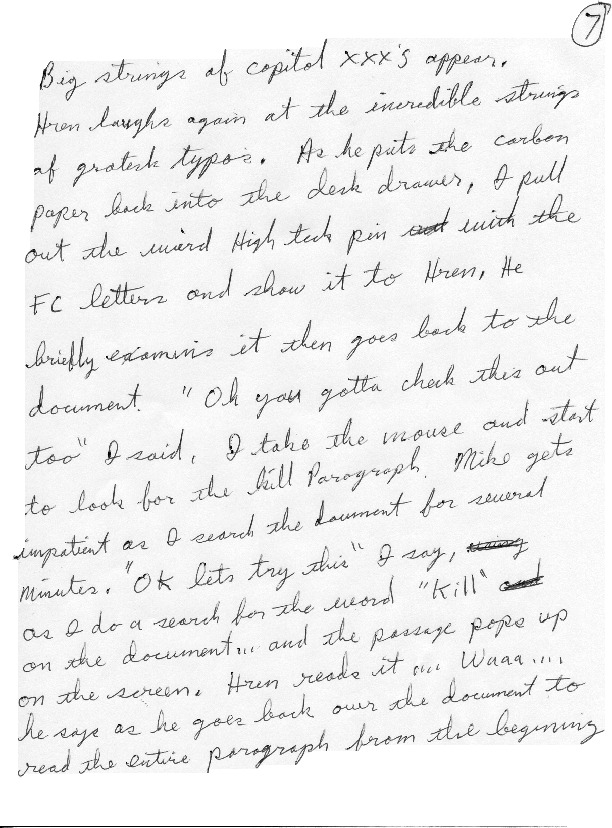 7
Big strings of capitol xxx's appear.
Hren laughs again at the incredible strings
of gratesk typo's. As he puts the carbon
paper back into the desk drawer, I pull
out the wierd High tech pin with the
FC letters and show it to Hren, He
briefly examins it then goes back to the
document. "Oh you gotta check this out
too" I said, I take the mouse and start
to look for the kill Paragraph. Mike gets
impatient as I search the document for several
minutes. "OK lets try this" I say,
as I do a search for the word "Kill"
on the document... and the passage pops up
on the screen. Hren reads it .... Waaa....
he says as he goes back over the document to
read the entire paragraph from the begining